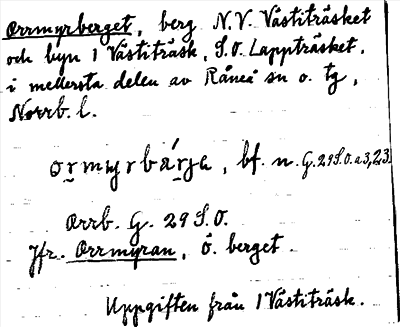 Orrmyrberget, berg N.V. Västiträsket
och byn 1 Västiträsk, S.O. Lappträsket,
i mellersta delen av Råneå sn o. tg,
Norrb. l.
or̯myrbár̯ja, bf. n. G. 29 S.O. a 3, 23.
Orrb. G. 29 S.O.
Jfr. Orrmyran, Ö. berget.
Uppgiften från 1 Västiträsk.